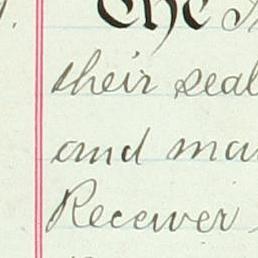 The
their seal
and
Receiver